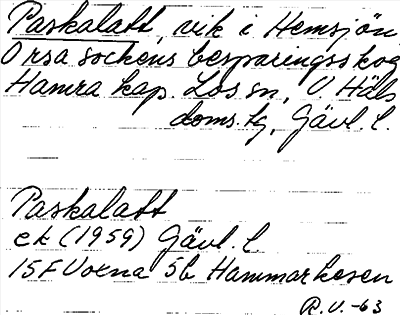 Paskalatt, vik i Hemsjön
Orsa sockens besparingsskog
Hamra kap. Los sn, V Häls
doms. tg, Gävl. l.
Paskalatt
ek (1959) Gävl. l
15F Voxna 5b Hammarkesen
R.V. -63